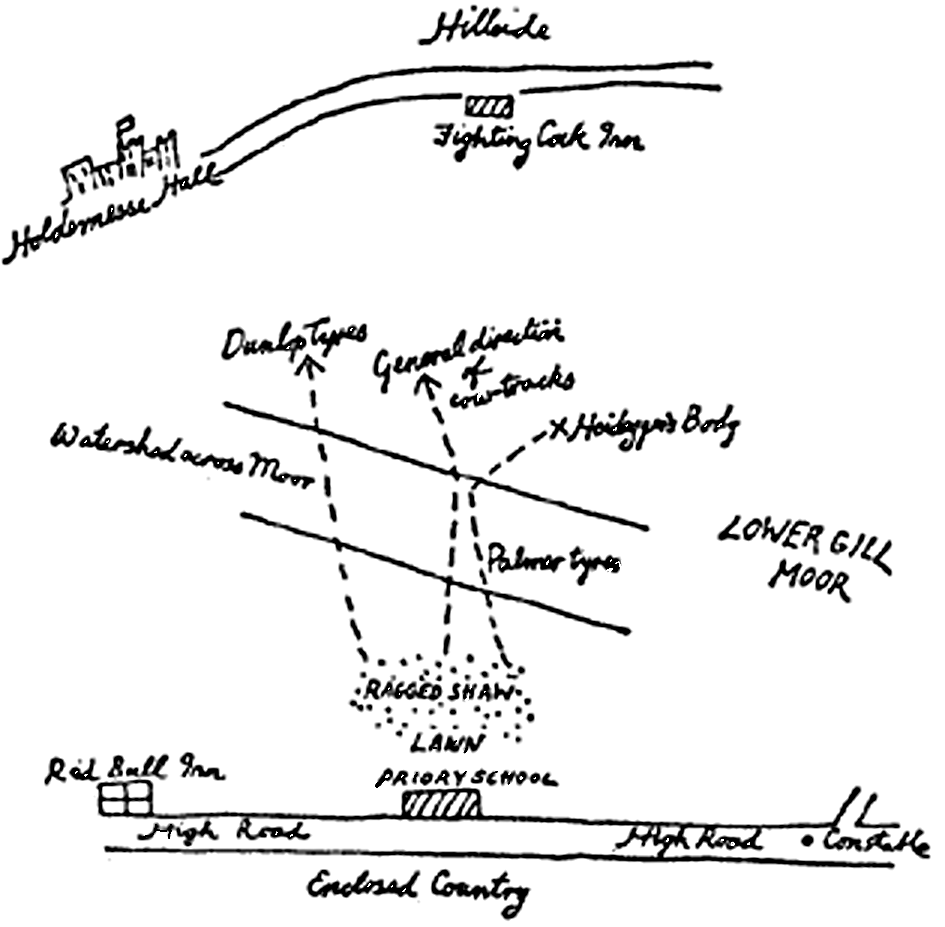 Hillside
Fighting Cock Inn
Holdernesse Hall
Dunlop Tyres
General direction
of
cow-tracks
x Heidegger's Body
Watershed across Moor
LOWER GILL
MOOR
Palmer tyres
RAGGED SHAW
LAWN
Red Bull Inn
PRIORY SCHOOL
High Road
High Road
Constable
Enclosed Country